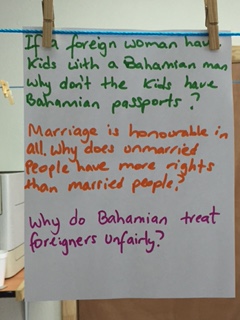 If a foreign woman have
kids with a Bahamian man
why don't the kids have
Bahamian passports?
Marriage is honourable in
all. Why does unmarried
People have more rights
than married people?
Why do Bahamian treat
foreigners unfairly?